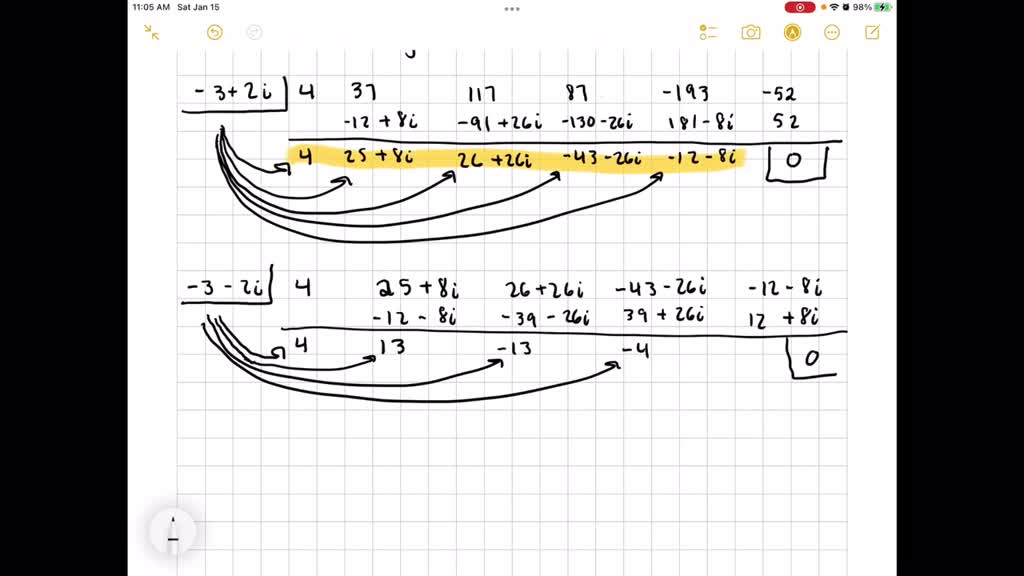 11:05 AM Sat Jan 15 98%
-3+2i 4 37 117 87 -193 -52
-12 +8i -91 +26i -130 -26i 181 -8i 52
4 25 +8i 26 +26i -43 -26i -12 -8i 0
-3 -2i 4 25 +8i 26 +26i -43 -26i -12 -8i
-12 -8i -39 -26i 39 +26i 12 +8i
4 13 -13 -4 0